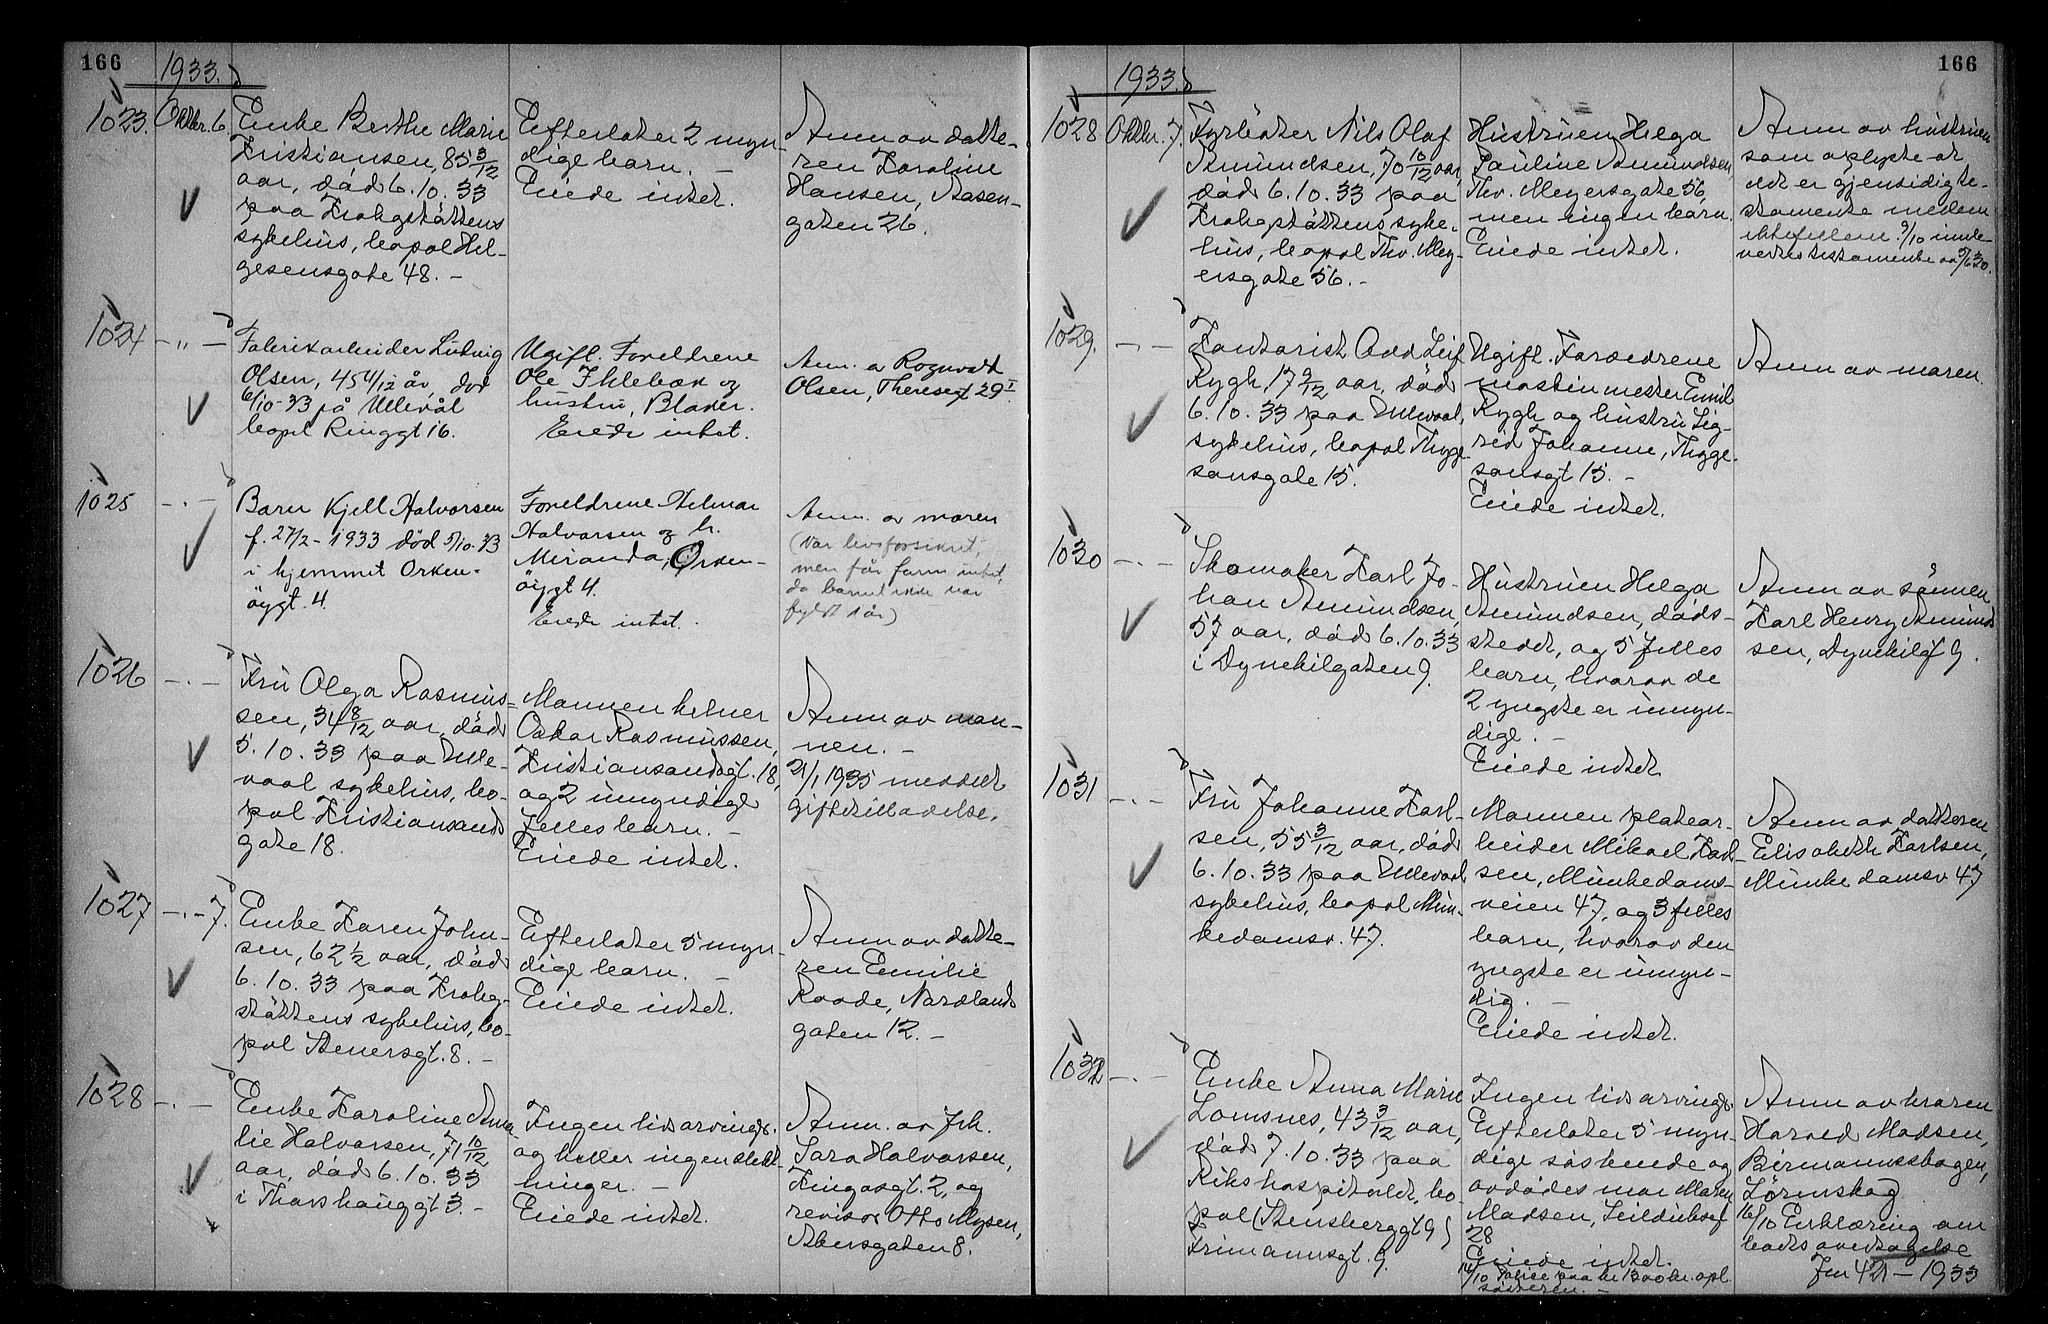 166
1933.
1023. Oktbr. 6.
Enke Berthe Marie
Kristiansen, 85 3/12
aar, död 6.10.33
paa Krohgstöttens
sykehus, bopæl Hel-
gesensgate 48. -
Efterlater 2 myn-
dige barn. -
Eiede intet.
Anm av datte-
ren Karoline
Hansen, Aasen-
gaten 26.
1024 - " -
Fabrikarbeider Ludvig
Olsen, 45 11/12 år, död
6/10-33 på Ullevål
bopel Ringgt 16.
Ugift. Foreldrene
Ole Ihlebæk og
hustru, Blaker.
Eiede intet.
Anm. a Ragnvald
Olsen, Theresegt 29 I
1025 - . -
Barn Kjell Halvorsen
f. 27/2-1933 död 5/10-33
i hjemmet Orken-
öygt. 4.
Foreldrene Hilmar
Halvorsen og h.
Miranda, Orken-
öygt 4.
Eiede intet.
Anm. av moren
(Var livsforsikret,
men får farm intet,
da barnet ikke var
fyldt 1 år)
1026 - . -
Fru Olga Rasmus-
sen, 34 8/12 aar, död
5.10.33 paa Ulle-
vaal sykehus, bo-
pæl Kristiansands
gate 18.
Mannen kelner
Oskar Rasmussen,
Kristiansandsgt. 18,
og 2 umyndige
felles barn. -
Eiede intet.
Anm av man-
nen. -
21/1 1935 meddelt
giftetilladelse.
1027 - . - 7.
Enke Karen John-
sen, 62 1/2 aar, död
6.10.33 paa Krohg-
stöttens sykehus, bo-
pæl Stenersgt. 8. -
Efterlater 5 myn-
dige barn. -
Eiede intet.
Anm av datte-
ren Emilie
Raade, Nordlands
gaten 12. -
1028 - . -
Enke Karoline Ama-
lie Halvorsen, 71 10/12
aar, död 6.10.33
i Thorshauggt 3. -
Ingen livsarvinger
og heller ingen slekt-
ninger. -
Eiede intet.
Anm. av frk.
Sara Halvorsen,
Fingasgt. 2, og
revisor Otto Mysen,
Abersgaten 8.
166
1933.
1028 Oktbr. 7.
Fyrböter Nils Olaf
Amundsen, 70 10/12 aar,
död 6.10.33 paa
Krohgstöttens syke-
hus, bopæl Thv. Mey-
ersgate 56. -
Hustruen Helga
Pauline Amundsen,
Thv. Meyersgate 56,
men ingen barn.
Eiede intet.
Anm av hustruen
som oplyste at
det er gjensidig te-
stamente mellem
ektefellene 9/10 innle-
vertes testamente av 5/6 30.
1029. - -
Kontorist Odd Leif
Rygh, 17 9/12 aar, död
6.10.33 paa Ullevaal
sykehus, bopæl Thygе-
sonsgate 15.
Ugift. Forældrene
maskinmester Emil
Rygh og hustru Sig-
rid Johanne, Thyge-
sonsgt 15. -
Eiede intet.
Anm av moren.
1030 - . -
Skomaker Karl Jo-
han Amundsen,
57 aar, död 6.10.33
i Dynekilgaten 9.
Hustruen Helga
Amundsen, döds-
stedet, og 5 felles
barn, hvorav de
2 yngste er umyn-
dige. -
Eiede intet
Anm av sönnen
Karl Henry Amund-
sen, Dynekilgt 9.
1031 - . -
Fru Johanne Karl-
sen, 55 3/12 aar, död
6.10.33 paa Ullevaal
sykehus, bopæl Mun-
kedamsv. 47.
Mannen platear-
beider Mikael Karl-
sen, Munkedams-
veien 47, og 3 felles
barn, hvorav den
yngste er umyn-
dig. -
Eiede intet.
Anm av datteren
Elisabeth Karlsen,
Munkedamsv 47
1032 - . -
Enke Anna Marie
Lomsnes, 43 3/12 aar,
död 7.10.33 paa
Rikshospitalet, bo-
pæl (Stensberggt 9)
Frimannsgt. 9.
Ingen livsarvinger.
Efterlater 5 myn-
dige söskende og
avdödes mor Maren
Madsen, Seilduksgt
28
Eiede intet.
14/10 Polise paa kr 1300 kr. opl.
sösteren. -
Anm av broren
Harald Madsen,
Birmannsskogen,
Lörenskog
16/10 Erklæring om
boets overtagelse
Jnr 421 - 1933